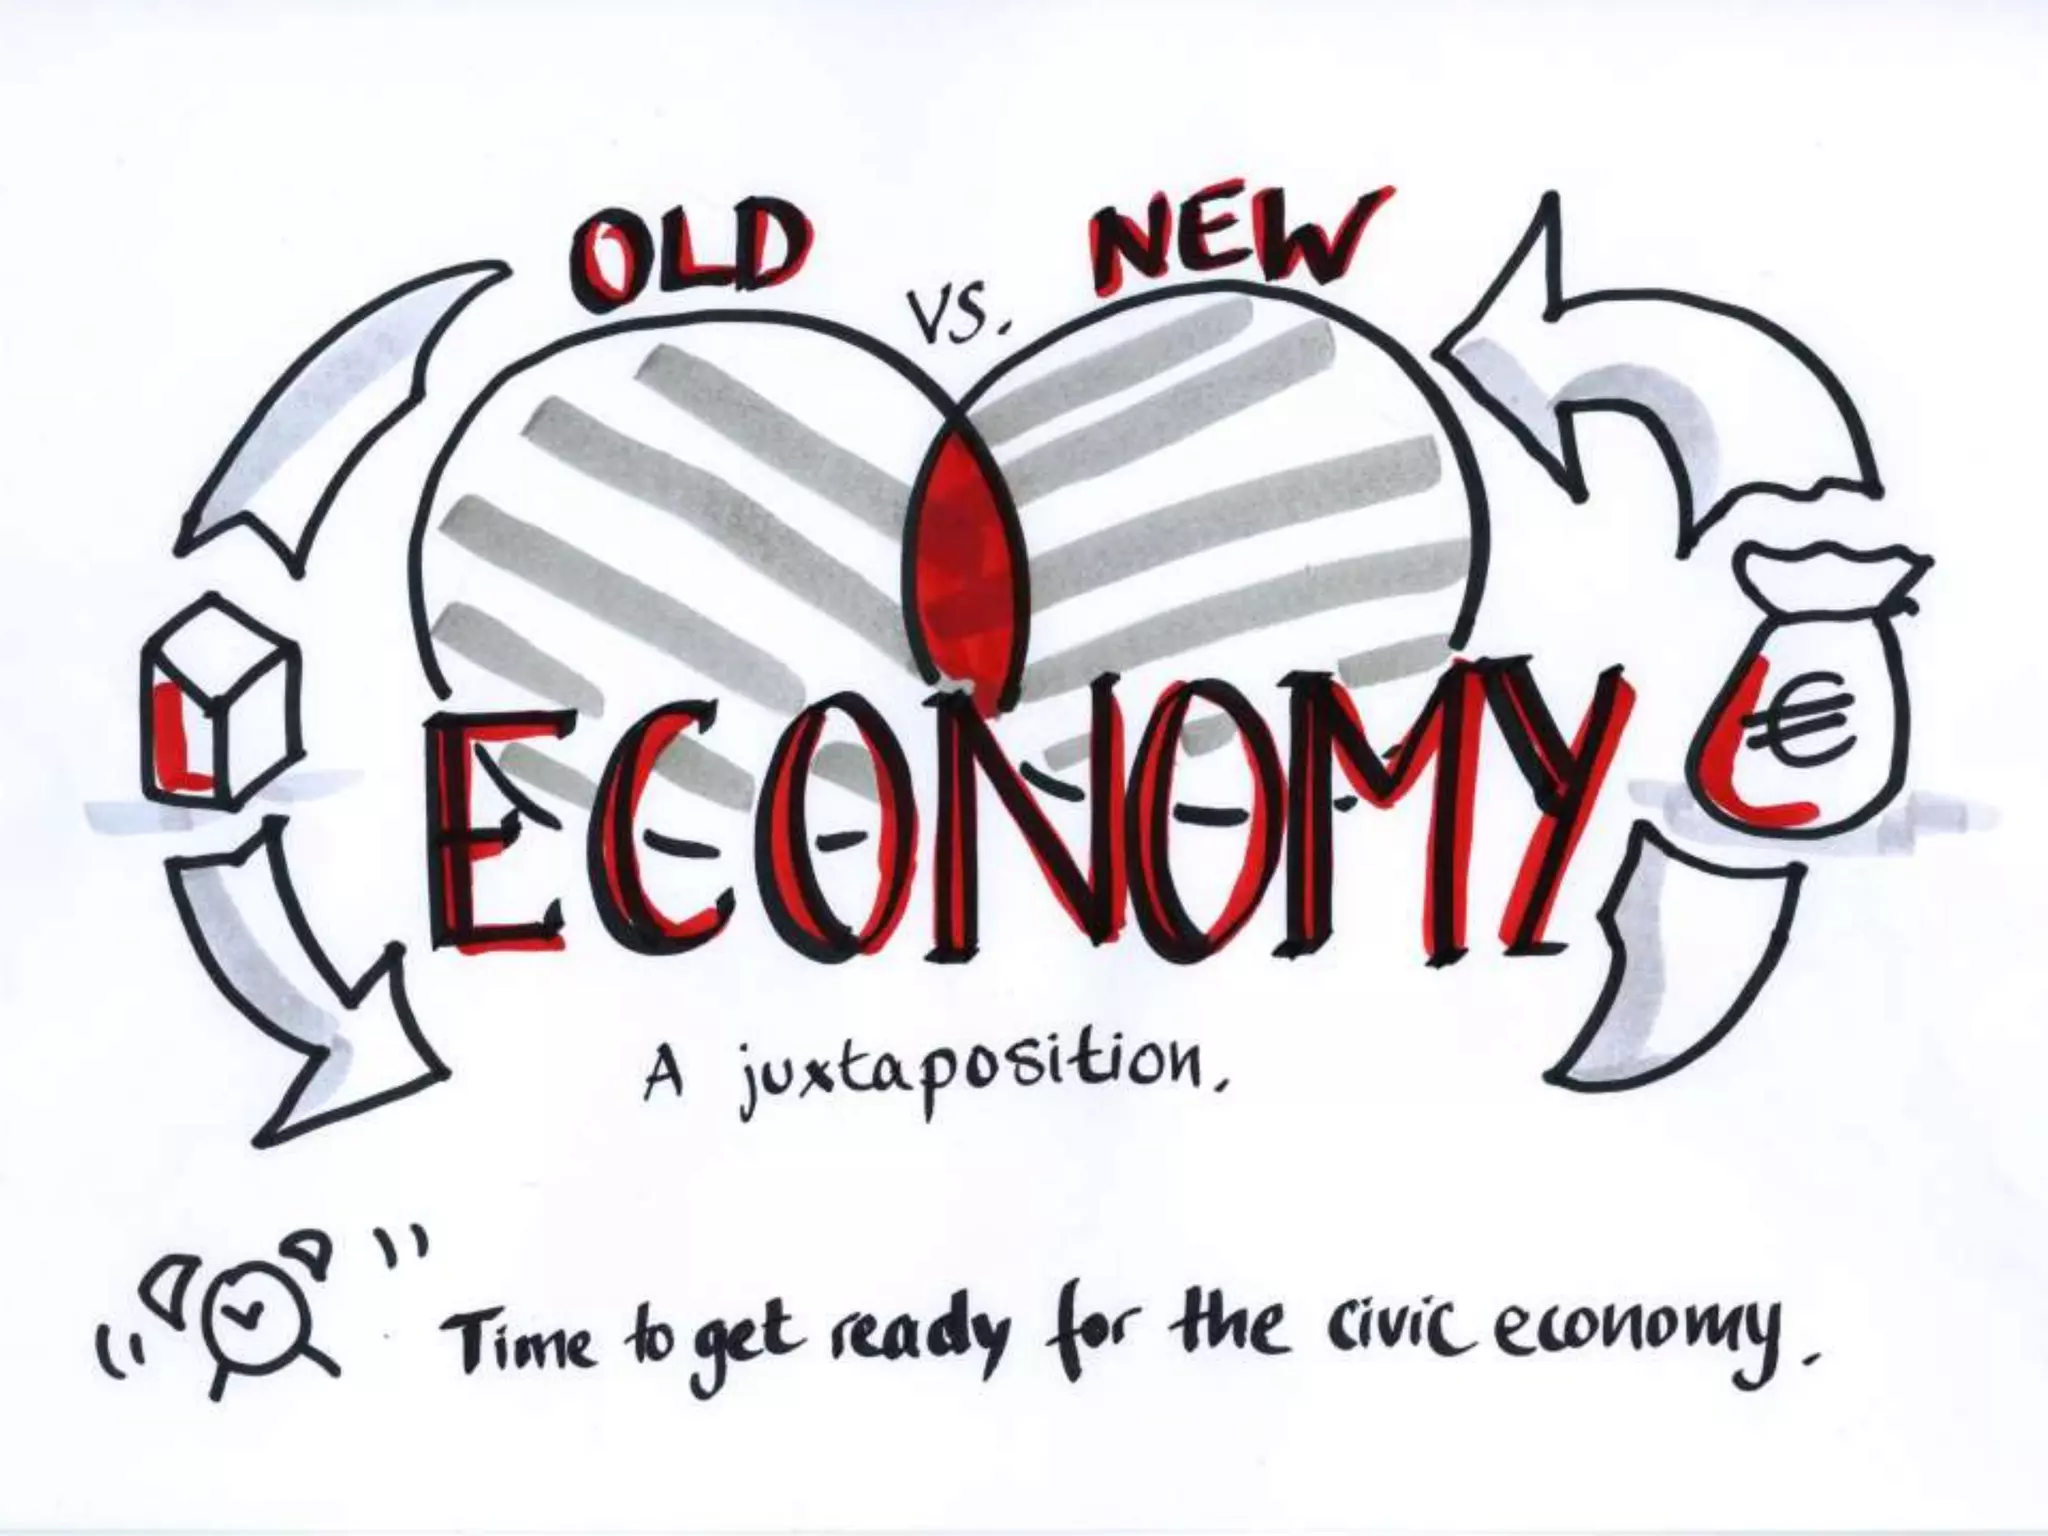 OLD vs. NEW
ECONOMY
€
A juxtaposition.
Time to get ready for the civic economy.